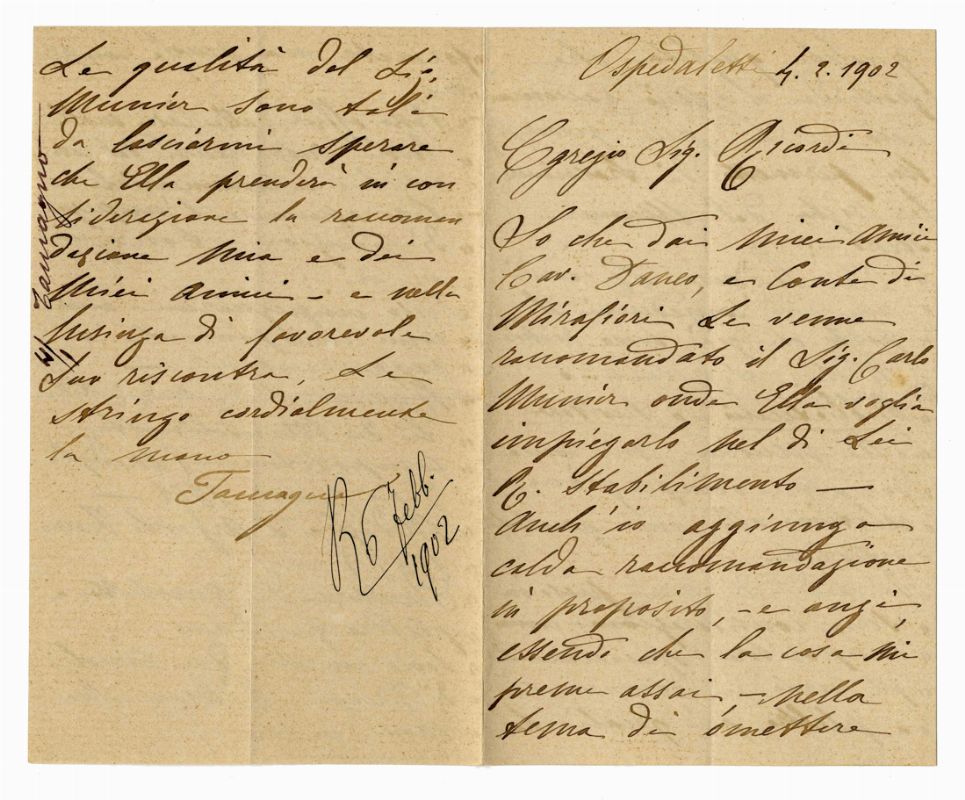 Ospedaletti 4. 2. 1902
Egregio Sig. Ricordi
So che dai miei amici
Cav. Daneo, e Conte di
Mirafiori Le venne
raccomandato il Sig. Carlo
Munier onde Ella voglia
impiegarlo nel di Lei
R. Stabilimento —
Anch'io aggiungo
calda raccomandazione
in proposito, - e anzi,
essendo che la cosa mi
preme assai - nella
tema di omettere
Le qualità del Sig.
Munier sono tali
da lasciarmi sperare
che Ella prenderà in con
siderazione la raccoman
dazione mia e dei
miei amici - e nella
lusinga di favorevole
Suo riscontro, Le
stringo cordialmente
la mano
Tamagno
R 6 Febb.
1902
4/ Tamagno